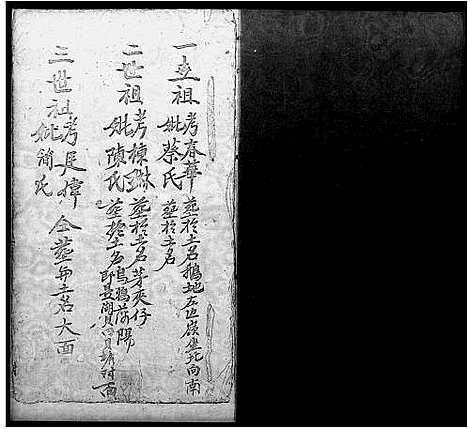 一世祖考春華葬於土名鵝地左邊嶺坐北向南
妣蔡氏葬於土名
二世祖考棟琳葬於土名芽夾仔
妣陳氏葬於土名烏鴉落陽
三世祖考廷偉仝葬於土名大面
妣簡氏